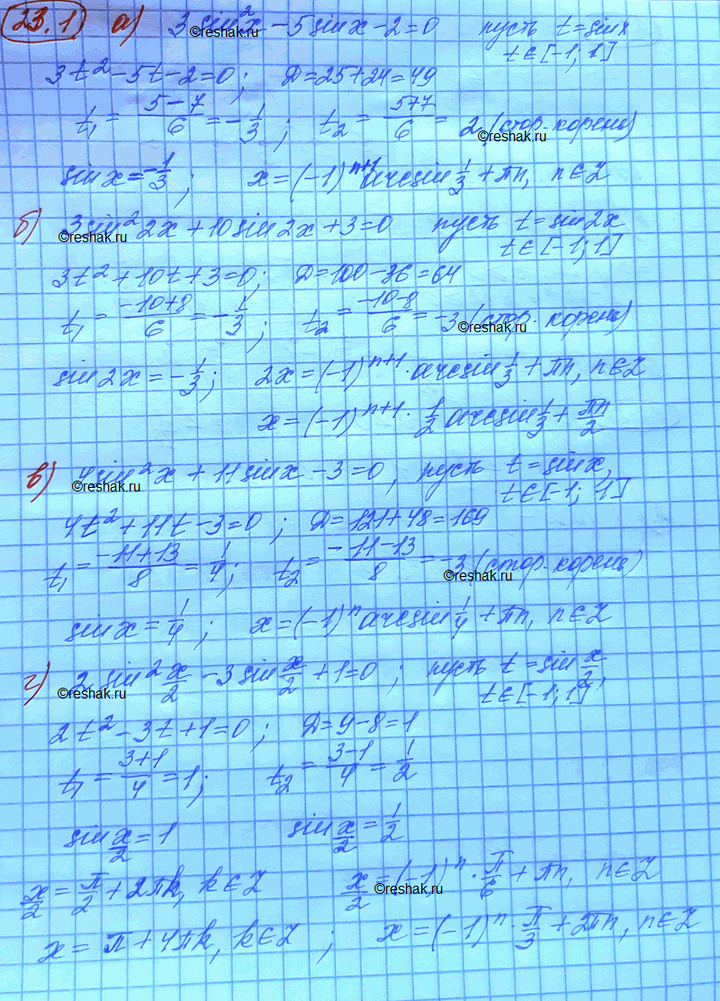 23.1 а) 3 sin²x - 5 sin x - 2 = 0 пусть t = sin x
©reshak.ru t ∈ [-1; 1]
3t² - 5t - 2 = 0; D = 25 + 24 = 49
t₁ = (5-7)/6 = -1/3; t₂ = (5+7)/6 = 2 (стор. корень)
©reshak.ru
sin x = -1/3; x = (-1)ⁿ⁺¹ arcsin 1/3 + πn, n ∈ Z
б) 3 sin² 2x + 10 sin 2x + 3 = 0 пусть t = sin 2x
©reshak.ru t ∈ [-1; 1]
3t² + 10t + 3 = 0; D = 100 - 36 = 64
t₁ = (-10+8)/6 = -1/3; t₂ = (-10-8)/6 = -3 (стор. корень)
©reshak.ru
sin 2x = -1/3; 2x = (-1)ⁿ⁺¹ · arcsin 1/3 + πn, n ∈ Z
x = (-1)ⁿ⁺¹ · 1/2 arcsin 1/3 + πn/2
в) 4 sin²x + 11 sin x - 3 = 0, пусть t = sin x,
©reshak.ru t ∈ [-1; 1]
4t² + 11t - 3 = 0; D = 121 + 48 = 169
t₁ = (-11+13)/8 = 1/4; t₂ = (-11-13)/8 = -3 (стор. корень)
©reshak.ru
sin x = 1/4; x = (-1)ⁿ arcsin 1/4 + πn, n ∈ Z
г) 2 sin² x/2 - 3 sin x/2 + 1 = 0; пусть t = sin x/2,
©reshak.ru t ∈ [-1; 1]
2t² - 3t + 1 = 0; D = 9 - 8 = 1
t₁ = (3+1)/4 = 1; t₂ = (3-1)/4 = 1/2
sin x/2 = 1 sin x/2 = 1/2
x/2 = π/2 + 2πk, k ∈ Z x/2 = (-1)ⁿ · π/6 + πn, n ∈ Z
©reshak.ru
x = π + 4πk, k ∈ Z; x = (-1)ⁿ · π/3 + 2πn, n ∈ Z